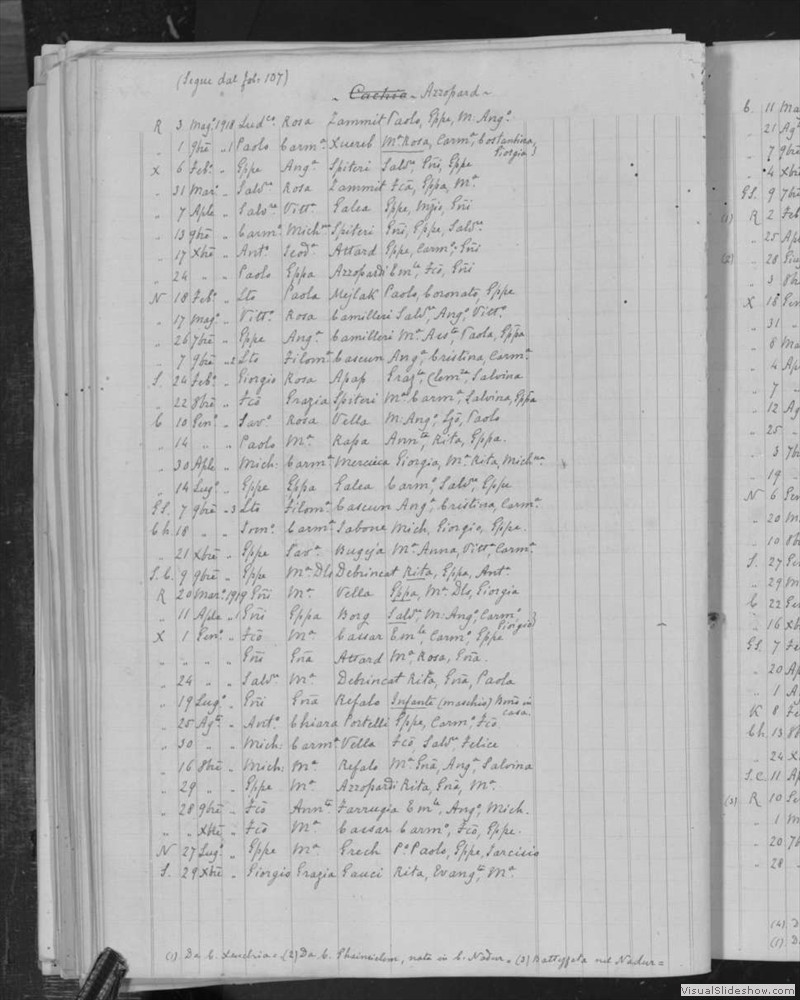 (Segue dal fol. 107)
- Cachia - Azzopard -
R 3 Magº 1918 Ludcº Rosa Zammit Paolo, Eppe, M. Angº
„ 1 9bre „ 1 Paolo Carmª Xuereb Mª Rosa, Carmª, Costantina, Giorgia)
X 6 Febº „ Eppe Angª Spiteri Salvª, Gni, Eppe
„ 31 Marº „ Salvº Rosa Zammit Fcō, Eppa, Mª
„ 7 Aple „ Salvre Vittª Galea Eppe, Gni
„ 13 9bre „ Carmº Michna Spiteri Gni, Eppe, Salvª
„ 17 Xbre „ Antº Teodª Attard Eppe, Carmº, Gni
„ 24 „ „ Paolo Eppa Azzopardi Emle, Fcō, Gni
N 18 Febº „ Lto Paola Mejlak Paolo, Coronato, Eppe
„ 17 Magº „ Vittº Rosa Camilleri Salvº, Angº, Vittº
„ 26 7bre „ Eppe Angª Camilleri Mª Asstª, Paola, Eppa
„ 7 9bre „ 2 Lto Filomª Cascun Angª, Cristina, Carmª
S. 24 Febº „ Giorgio Rosa Apap Grazla, Clemte, Salvina
„ 22 8bre „ Fcō Grazia Spiteri Mª Carmª, Salvina, Eppa
C 10 Genº „ Savº Rosa Vella M. Angº, Paolo
„ 14 „ „ Paolo Mª Rapa Annta, Rita, Eppa.
„ 30 Aple „ Mich. Carmª Mercieca Giorgia, Mª Rita, Michna
„ 14 Lugº „ Eppe Eppa Galea Carmº, Salvº, Eppe
GS. 7 9bre „ 3 Lto Filomª Cascun Angº, Cristina, Carmª
Ch 18 „ „ Carmª Mich, Giorgio, Eppe.
„ 21 Xbre „ Eppe Savª Bugeja Mª Anna, Vittª, Carmª
S.C. 9 9bre „ Eppe Mª Dls Debrincat Rita, Eppa, Antº
R 20 Marº 1919 Gni Mª Vella Eppa, Mª Dls, Giorgia
„ 11 Aple „ 1 Gni Eppa Borg Salvº, M. Angº, Carmº Giorgio)
X 1 Genº „ Fcō Mª Cassar Emle, Carmº, Eppe
„ „ „ „ Gni Gna Attard Mª, Rosa, Gna.
„ 24 „ „ Salvº Mª Debrincat Rita, Gna, Paola
„ 19 Lugº „ Gni Gna Refalo Infante (maschio) Morto in casa.
„ 25 Agto „ Antº Chiara Portelli Eppe, Carmº, Fcō
„ 30 „ „ Mich. Carmª Vella Fcō, Salvº, Felice
„ 16 8bre „ Mich. Mª Refalo Mª Gna, Angª, Salvina
„ 29 „ „ Eppe Mª Azzopardi Rita, Gna, Mª
„ 28 9bre „ Fcō Annta Farrugia Emle, Angº, Mich.
„ „ Xbre „ Fcō Mª Cassar Carmº, Fcō, Eppe.
N 27 Lugº „ Eppe Mª Grech Pº Paolo, Eppe, Tarcisio
S. 29 Xbre „ Giorgio Grazia Gauci Rita, Evangta, Mª
(1) Da C. Xeuchia = (2) Da C. Ghainsielem, nato in C. Nadur = (3) Battezzata nel Nadur =
C 11 Ma
21 Ag
7 9bre
4 Xbre
GS. 9 7bre
(1) R 2 Feb
25 Ap
(2) „ 28 Giu
3 8bre
X 18 Gen
31
8 Ma
4 Ap
7
12 Ag
25
3 7b
19
N 6 Gen
20 M
10 8b
S. 27 Ge
29 M
C 22 Gen
16 Xb
GS 7 Fe
20 Ap
1 A
K 8 Fe
Ch 13 8b
24 X
S.C. 11 Ap
(3) R 10 Ge
1 M
20 7b
28
(4) D
(1) D
VisualSlideshow.com